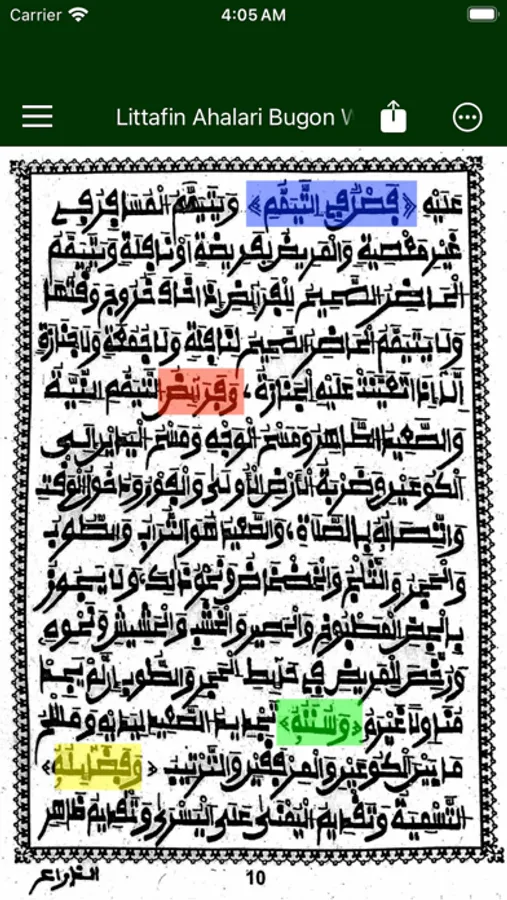 Carrier 4:05 AM
Littafin Ahalari Bugon
عَلَيْهِ ﴿فَصْلٌ فِي التَّيَمُّمِ﴾ وَيَتَيَمَّمُ الْمُسَافِرُ فِي
غَيْرِ مَعْصِيَةٍ وَالْمَرِيضُ لِفَرِيضَةٍ أَوْ نَافِلَةٍ وَيَتَيَمَّمُ
الْحَاضِرُ الصَّحِيحُ لِلْفَرَائِضِ إِذَا خَافَ خُرُوجَ وَقْتِهَا
وَلَا يَتَيَمَّمُ الْحَاضِرُ الصَّحِيحُ لِنَافِلَةٍ وَلَا جُمُعَةٍ وَلَا جَنَازَةٍ
إِلَّا إِذَا تَعَيَّنَتْ عَلَيْهِ الْجَنَازَةُ، وَفَرَائِضُ التَّيَمُّمِ النِّيَّةُ
وَالصَّعِيدُ الطَّاهِرُ وَمَسْحُ الْوَجْهِ وَمَسْحُ الْيَدَيْنِ إِلَى
الْكُوعَيْنِ وَضَرْبَةُ الْأَرْضِ الْأُولَى وَالْفَوْرُ وَدُخُولُ الْوَقْتِ
وَاتِّصَالُهُ بِالصَّلَاةِ، وَالصَّعِيدُ هُوَ التُّرَابُ وَالطُّوبُ
وَالْحَجَرُ وَالثَّلْجُ وَالْخَضْخَاضُ وَنَحْوُ ذَلِكَ، وَلَا يَجُوزُ
بِالْجِصِّ الْمَطْبُوخِ وَالْحَصِيرِ وَالْخَشَبِ وَالْحَشِيشِ وَنَحْوِهِ
وَرُخِّصَ لِلْمَرِيضِ فِي حَائِطِ الْحَجَرِ وَالطُّوبِ إِنْ لَمْ يَجِدْ
مُنَاوِلًا غَيْرَهُ ﴿وَسُنَنُهُ﴾ تَجْدِيدُ الصَّعِيدِ لِيَدَيْهِ وَمَسْحُ
مَا بَيْنَ الْكُوعَيْنِ وَالْمِرْفَقَيْنِ وَالتَّرْتِيبُ ﴿وَفَضَائِلُهُ﴾
التَّسْمِيَةُ وَتَقْدِيمُ الْيُمْنَى عَلَى الْيُسْرَى وَتَقْدِيمُ ظَاهِرِ
الذراع
10